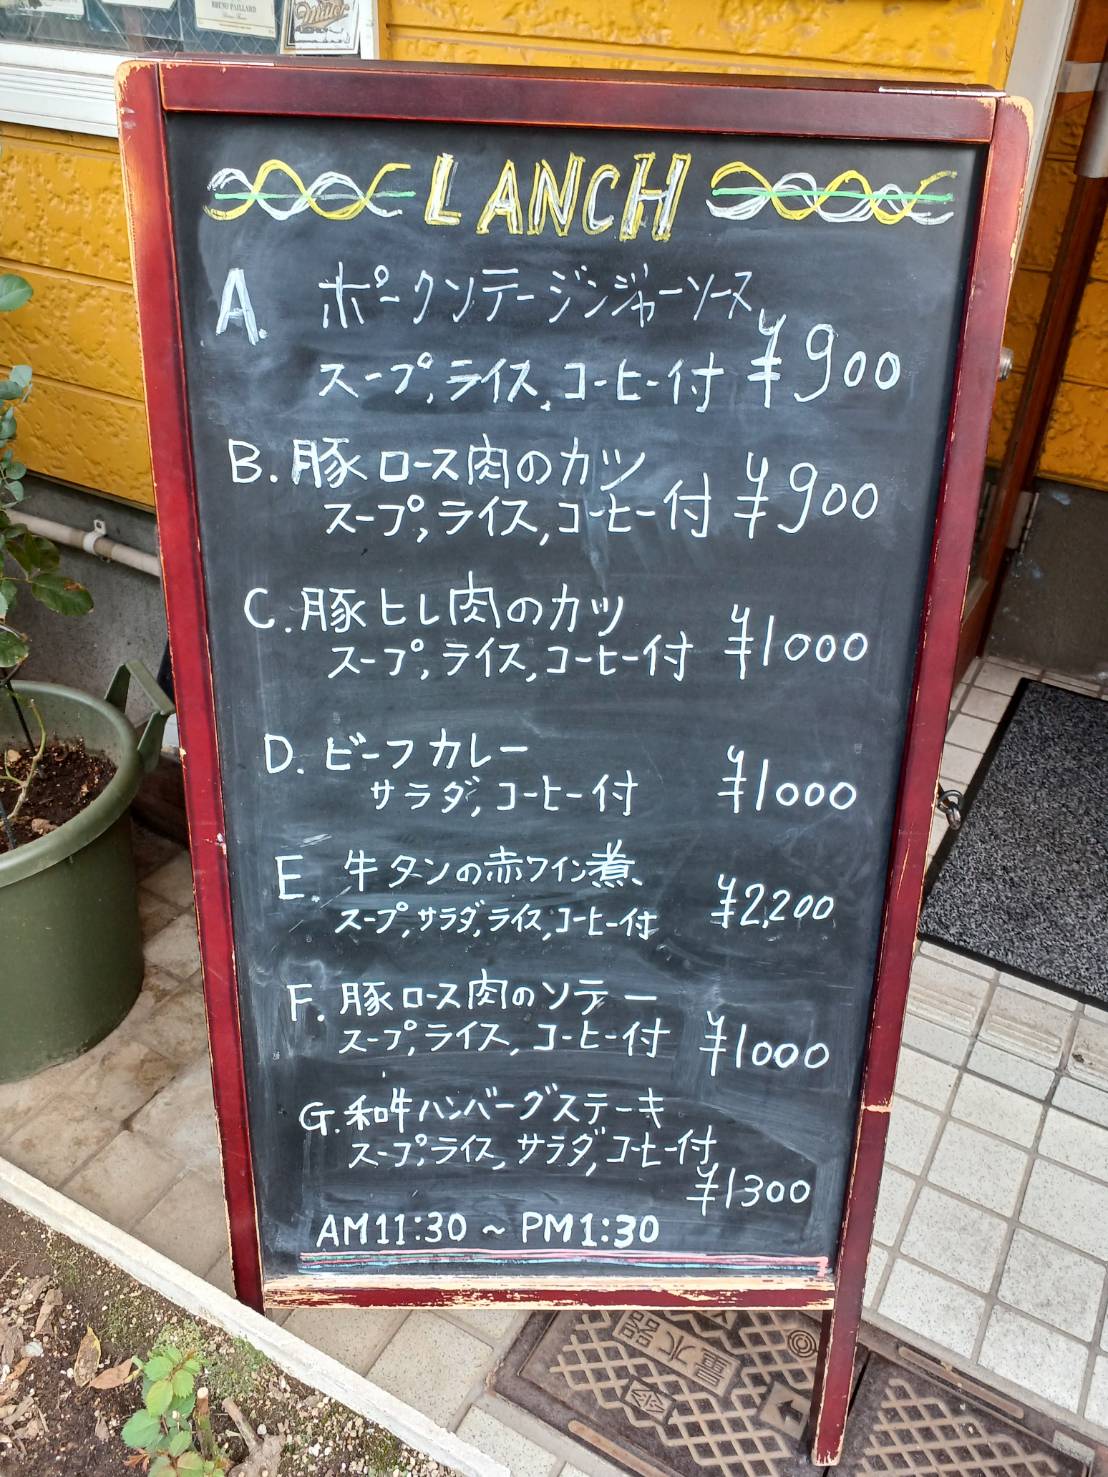 BRUNO PAILLARD
Miller
LANCH
A. ポークソテージンジャーソース
スープ,ライス,コーヒー付 ¥900
B. 豚ロース肉のカツ
スープ,ライス,コーヒー付 ¥900
C. 豚ヒレ肉のカツ
スープ,ライス,コーヒー付 ¥1000
D. ビーフカレー
サラダ,コーヒー付 ¥1000
E. 牛タンの赤ワイン煮、
スープ,サラダ,ライス,コーヒー付 ¥2,200
F. 豚ロース肉のソテー
スープ,ライス,コーヒー付 ¥1000
G. 和牛ハンバーグステーキ
スープ,ライス,サラダ,コーヒー付
¥1300
AM11:30 ~ PM1:30